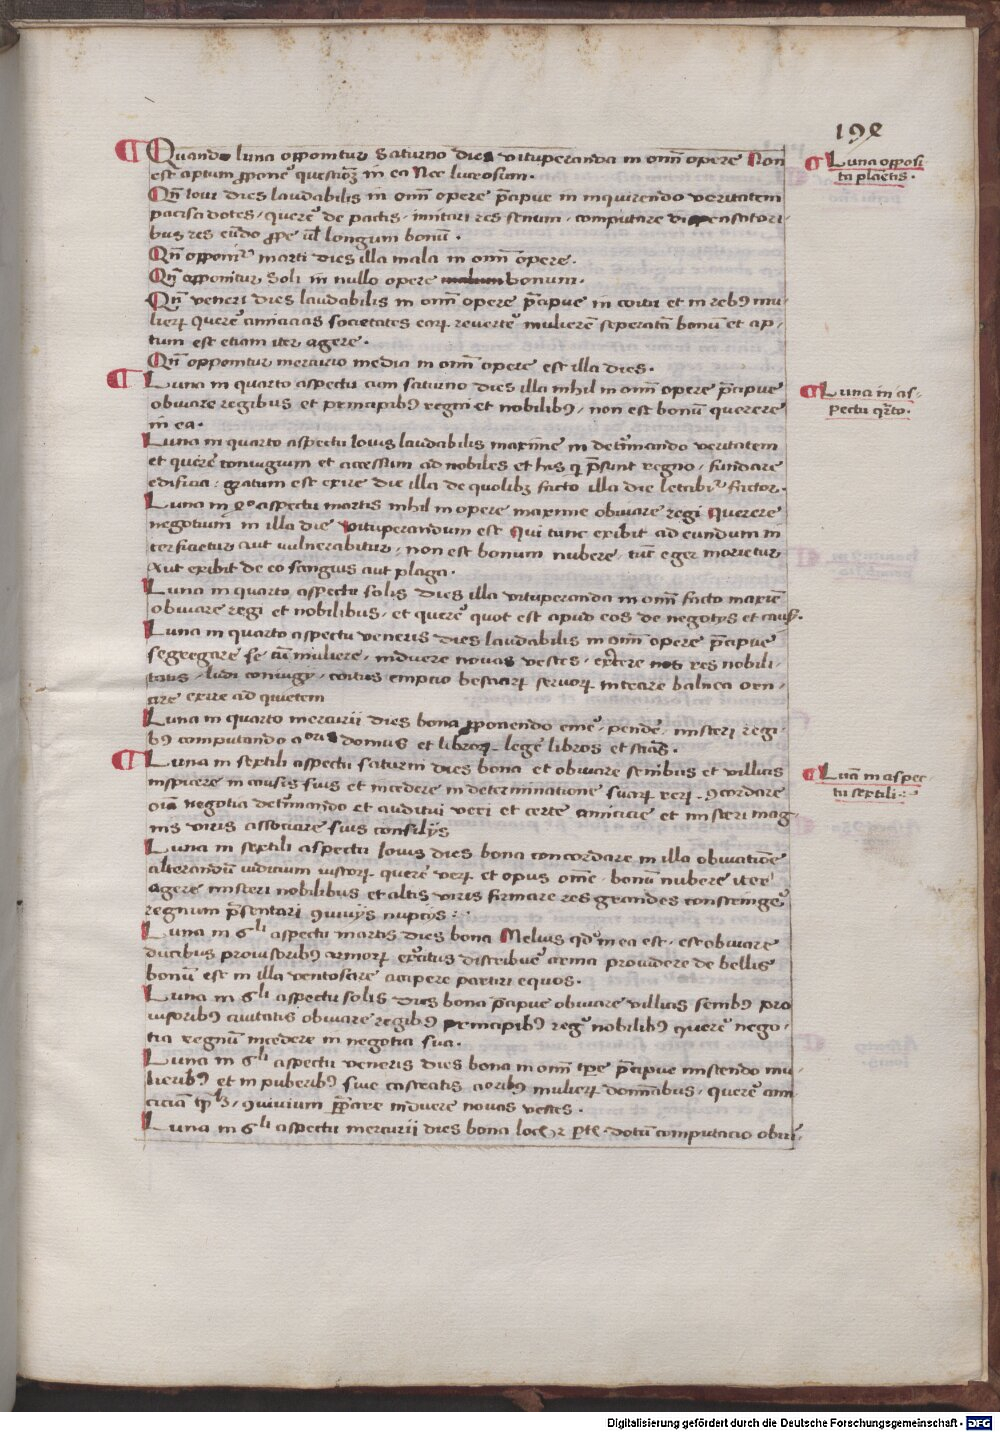 198
¶ Quando luna opponitur Saturno dies vituperanda in omni opere Non
est aptum ꝓponē questiōꝫ in ea Nec lucrosum.
Qn̄ Ioui dies laudabilis in omni opere p̄cipue in inquirendo veritatem
pacis dotes, querē de pactis, imitari res senum, computare dispensatori-
bus res eūdo ꝓpe ul̄ longum bonū.
Qn̄ opponit̄ marti dies illa mala in omni opere.
Qn̄ opponitur Soli in nullo opere bonum.
Qn̄ veneri dies laudabilis in omni opere p̄cipue in coitu et in rebꝰ mu-
lieꝝ querē amicicias societates eaꝝ reuertē mulierē seperatā bonū et ap-
tum est etiam iter agere.
Qn̄ opponitur mercurio media in omni opere est illa dies.
¶ Luna in quarto aspectu cum saturno dies illa nihil in omni opere p̄cipue
obuiare regibus et principibꝰ regni et nobilibꝰ, non est bonū querere
in ea.
Luna in quarto aspectu Iouis laudabilis maxime in det̄minando veritatem
et querē coniugium et accessum ad nobiles et his q̄ p̄sunt regno, fundare
edificia: gratum est exire die illa de quolibꝫ facto illa die letabit̄ factor.
Luna in 4º aspectu martis nihil in opere maxime obuiare regi Querere
negotium in illa die vituperandum est Qui tunc exibit ad eundum in
terficietur aut vulnerabitur, non est bonum nubere, tūc eger morietur
Aut exibit de eo sanguis aut plaga.
Luna in quarto aspectu solis dies illa vituperanda in omni facto maxīe
obuiare regi et nobilibus, et querē quot est apud eos de negotijs et caus.
Luna in quarto aspectu veneris dies laudabilis in omni opere p̄cipue
segregare se cū muliere, induere nouas vestes, res nobili-
tatis, ludi coniugij, coitus emptio bestiaꝝ seruoꝝ intrare balnea orn-
are exire ad quietem
Luna in quarto mercurii dies bona ꝓponendo emē, pendē, misteri regi-
bꝰ computando domus et libroꝝ legē libros et sc̄as.
¶ Luna in sextili aspectu saturni dies bona et obuiare senibus et villicis
inspicere in causis suis et incedere in determinatione suaꝝ reꝝ, ꝯcordare
oīa negotia det̄minando et auditui veri et certe amicicie et misteri mag
nis viris associare suis consilijs
Luna in sextili aspectu Iouis dies bona concordare in illa obuiatiōe
alterandū iudicium iustoꝝ querē veꝝ et opus omē, bonū nubere iter
agere misteri nobilibus et altis viris firmare res grandes constringē
regnum p̄sentari ꝯuiuijs nuptijs:
Luna in 6li aspectu martis dies bona Melius qd̄ in ea est, est obuiare
ducibus prouisoribꝰ armoꝝ exc̄itus distribuē arma prouidere de bellis
bonū est in illa ventosare accipere partiri equos.
Luna in 6li aspectu solis dies bona p̄cipue obuiare villicis senibꝰ pro
uisoribꝰ ciuitatis obuiare regibꝰ principibꝰ regꝰ nobilibꝰ querē nego-
tia regnū incedere in negotia sua.
Luna in 6li aspectu veneris dies bona in omni tꝑe p̄cipue miscendo mu-
lieribꝰ et in puberibꝰ siue castratis mulieꝝ dominabus, querē ami
ciciā ꝯuiuium p̄pare induere nouas vestes.
Luna in 6li aspectu mercurii dies bona computacio obui
¶ Luna opposi
ta planetis.
¶ Luna in as-
pectu q̄rto.
¶ Luā in aspec
tu sextili
Digitalisierung gefördert durch die Deutsche Forschungsgemeinschaft - DFG